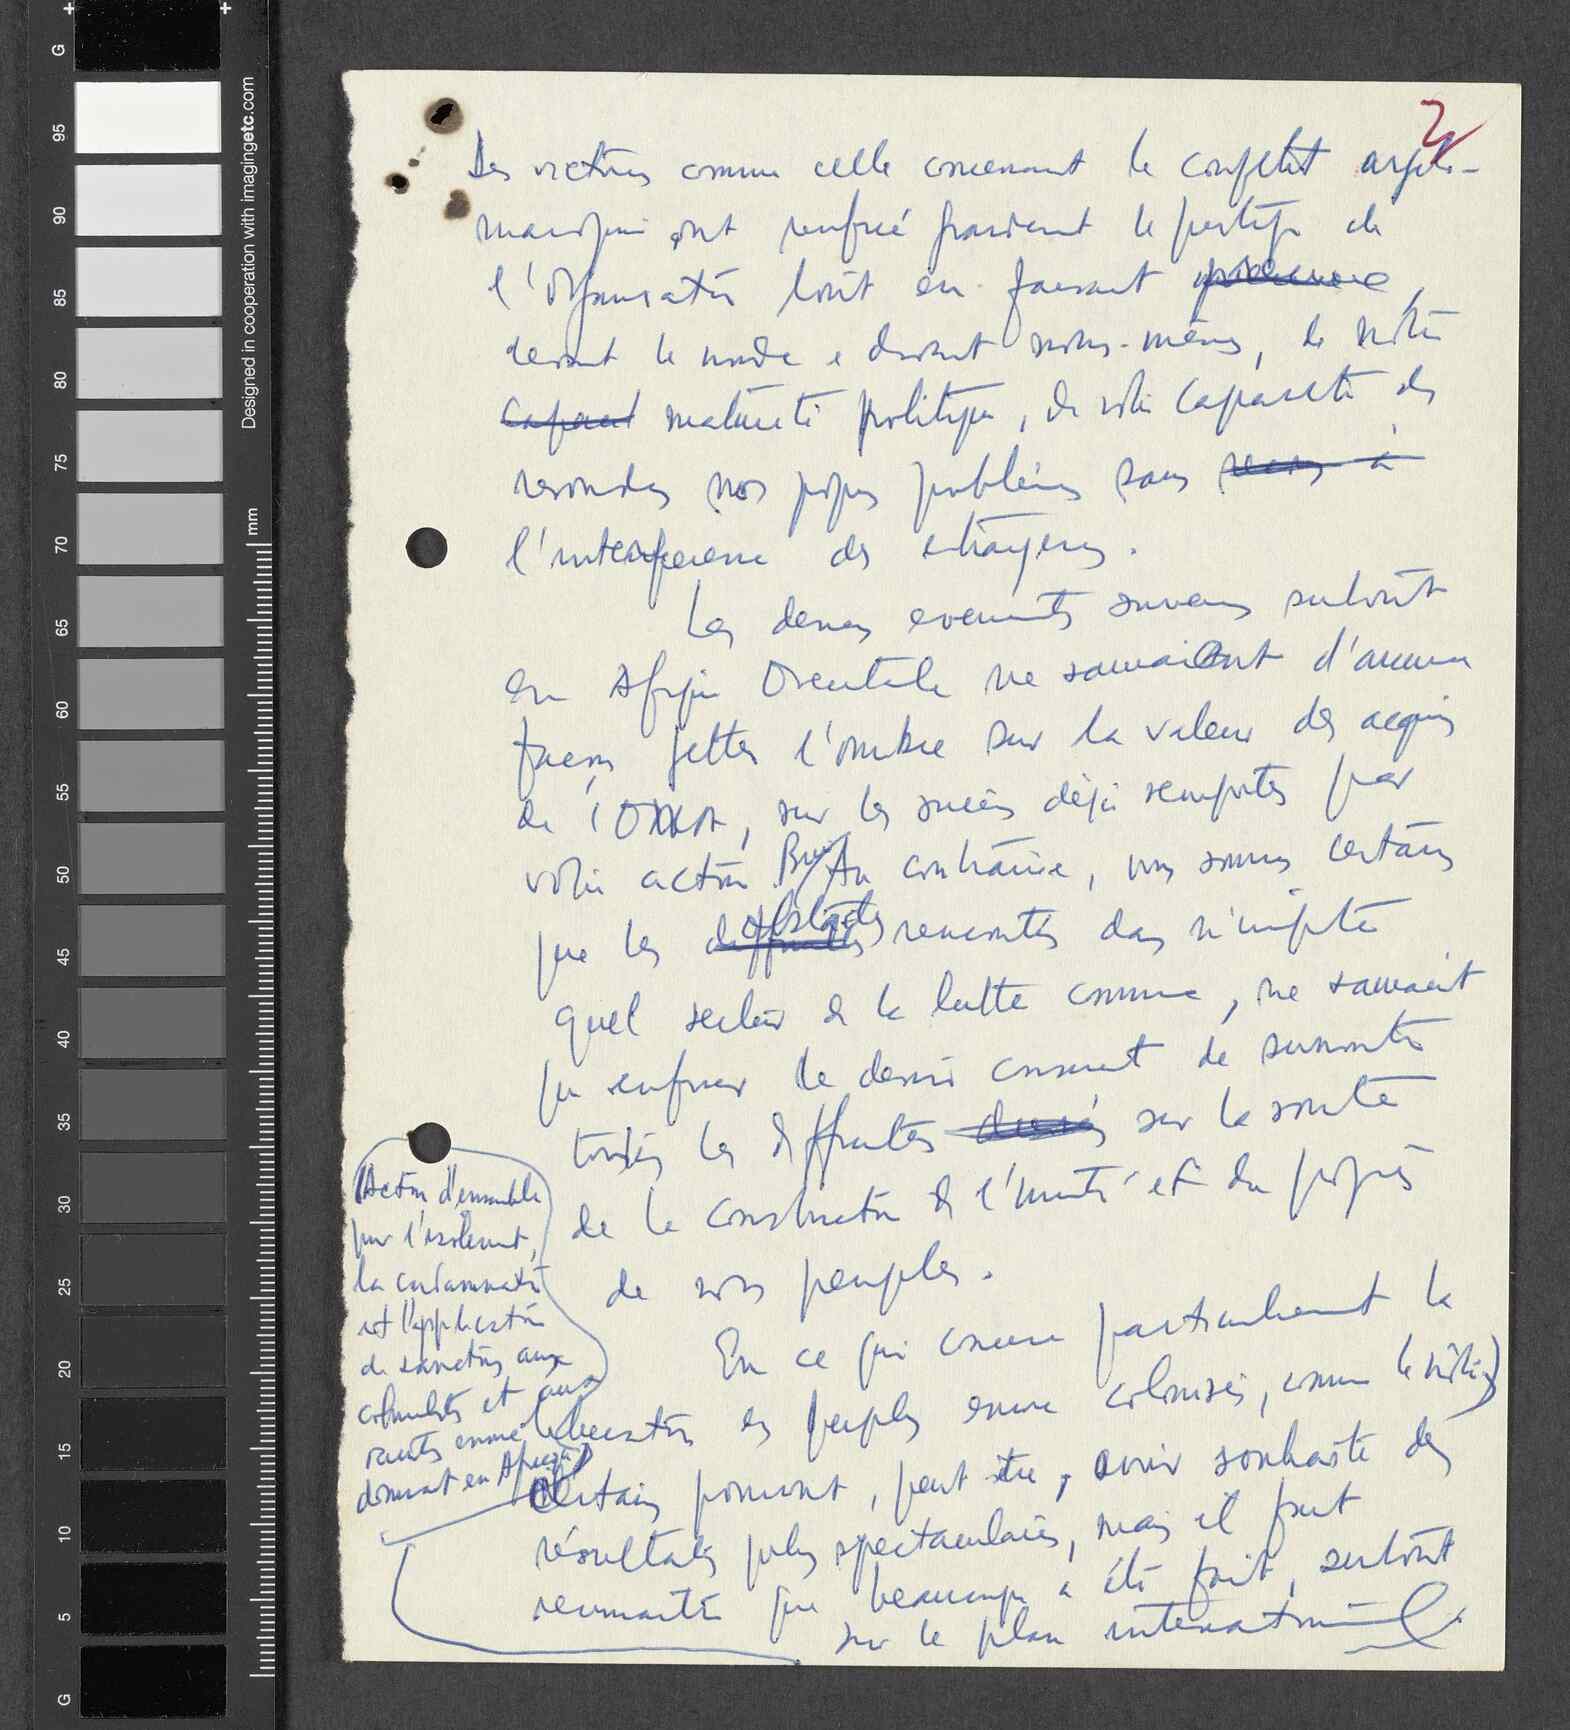 2
Des victoires comme celle concernant le conflit algéro-
marocain ont renforcé grandement le prestige de
l'Organisation tout en faisant preuve,
devant le monde e devant nous-mêmes, de notre
capacit maturité politique, de notre capacité de
resoudre nos propres problèmes sans recours à
l'interference des étrangers.
Les derniers evenements survenus surtout
en Afrique Orientale ne sauraient d'aucune
façon jetter l'ombre sur la valeur des acquis
de l'OUA, sur les succès déjà remportés par
votre action. Au contraire, nous sommes certains
que les difficultés obstacles rencontrés dans n'importe
quel secteur de la lutte commune, ne sauraient
que renforcer le devoir commun de surmonter
toutes les difficultés sur la route
de la construction de l'unité et du progrès
de nos peuples.
En ce qui concerne particulièrement la
liberation des peuples encore colonisés, comme le nôtre)
Certains pourront, peut être, avoir souhaité des
résultats plus spectaculaires, mais il faut
reconnaître que beaucoup a été fait, surtout
sur le plan international.
(Action d'ensemble
pour l'isolement,
la condamnation
et l'application
de sanctions aux
colonialistes et aux
racistes comme
dominant en Afrique)